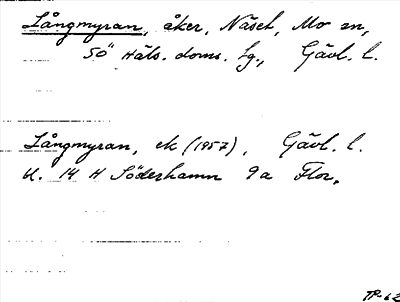 Långmyran, åker, Näset, Mo sn,
S. Häls. doms. lg., Gävl. l.
Långmyran, ek (1957), Gävl. l.
14 H Söderhamn 9a Flor,
TP-62